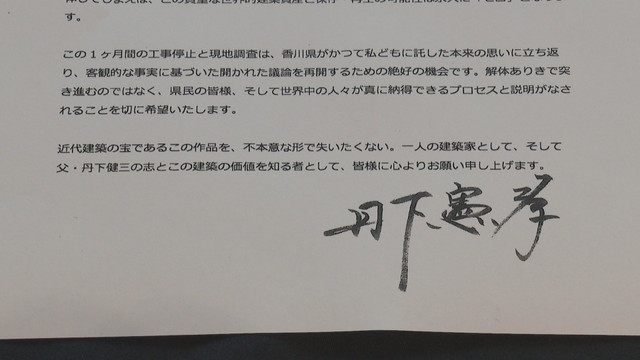 す。
この1ヶ月間の工事停止と現地調査は、香川県がかつて私どもに託した本来の思いに立ち返
り、客観的な事実に基づいた開かれた議論を再開するための絶好の機会です。解体ありきで突
き進むのではなく、県民の皆様、そして世界中の人々が真に納得できるプロセスと説明がなさ
れることを切に希望いたします。
近代建築の宝であるこの作品を、不本意な形で失いたくない。一人の建築家として、そして
父・丹下健三の志とこの建築の価値を知る者として、皆様に心よりお願い申し上げます。
丹下憲孝